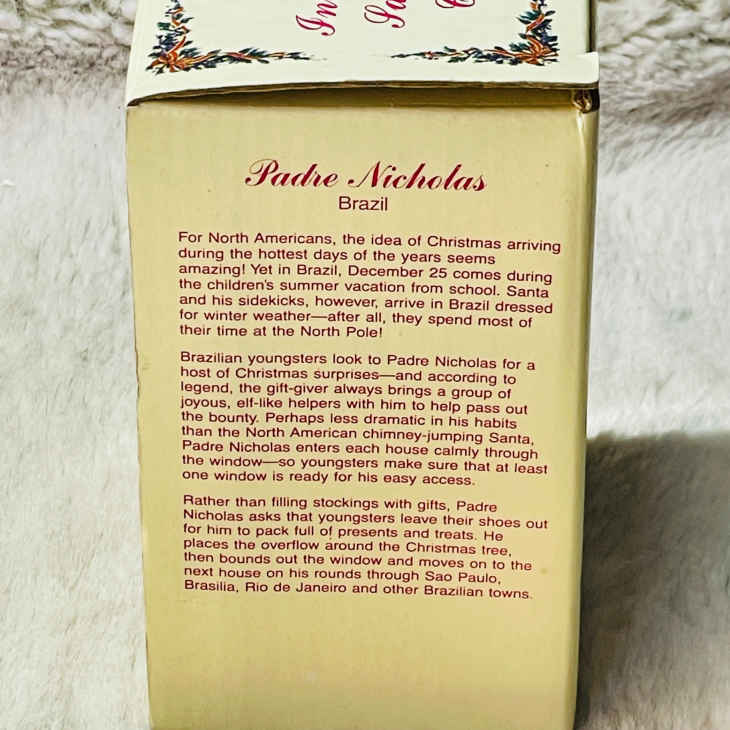 In
Sa
Padre Nicholas
Brazil
For North Americans, the idea of Christmas arriving
during the hottest days of the years seems
amazing! Yet in Brazil, December 25 comes during
the children's summer vacation from school. Santa
and his sidekicks, however, arrive in Brazil dressed
for winter weather—after all, they spend most of
their time at the North Pole!
Brazilian youngsters look to Padre Nicholas for a
host of Christmas surprises—and according to
legend, the gift-giver always brings a group of
joyous, elf-like helpers with him to help pass out
the bounty. Perhaps less dramatic in his habits
than the North American chimney-jumping Santa,
Padre Nicholas enters each house calmly through
the window—so youngsters make sure that at least
one window is ready for his easy access.
Rather than filling stockings with gifts, Padre
Nicholas asks that youngsters leave their shoes out
for him to pack full of presents and treats. He
places the overflow around the Christmas tree,
then bounds out the window and moves on to the
next house on his rounds through Sao Paulo,
Brasilia, Rio de Janeiro and other Brazilian towns.